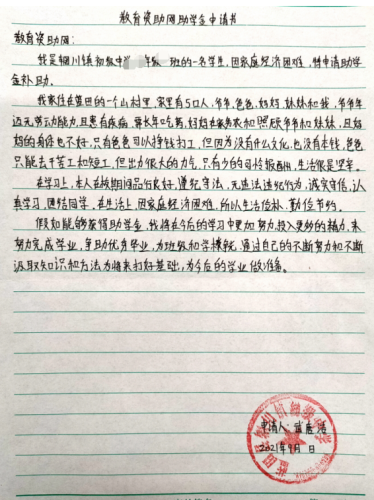 教育资助网助学金申请书
教育资助网：
我是铜川镇初级中 年级 班的一名学生，因家庭经济困难，特申请助学
金补助。
我家住在莒田的一个山村里，家里有5口人，爷爷，爸爸，妈妈，妹妹和我，爷爷年
迈无劳动能力，且患有疾病，需长年吃药，妈妈在家务农和照顾爷爷和妹妹，且妈
妈的身体也不好，只有爸爸可以挣钱打工，但因为没有什么文化，也没有本钱，爸爸
只能去干苦工和短工，但出力很大的力气，只有少的可怜报酬，生活很是坚辛。
在学习上，本人在校期间品行良好，遵纪守法，无违法违纪行为，诚实守信，认
真学习，团结同学，在生活上，因家庭经济困难，所以生活俭朴，勤俭节约。
假如能够获得助学金，我将在今后的学习中更加努力，投入更多的精力，来
努力完成学业，争取优秀毕业，为班级和学校，通过自己的不断努力和不断
汲取知识和方法为将来打好基础，为今后的学业做准备。
申请人：
2021年9月 日